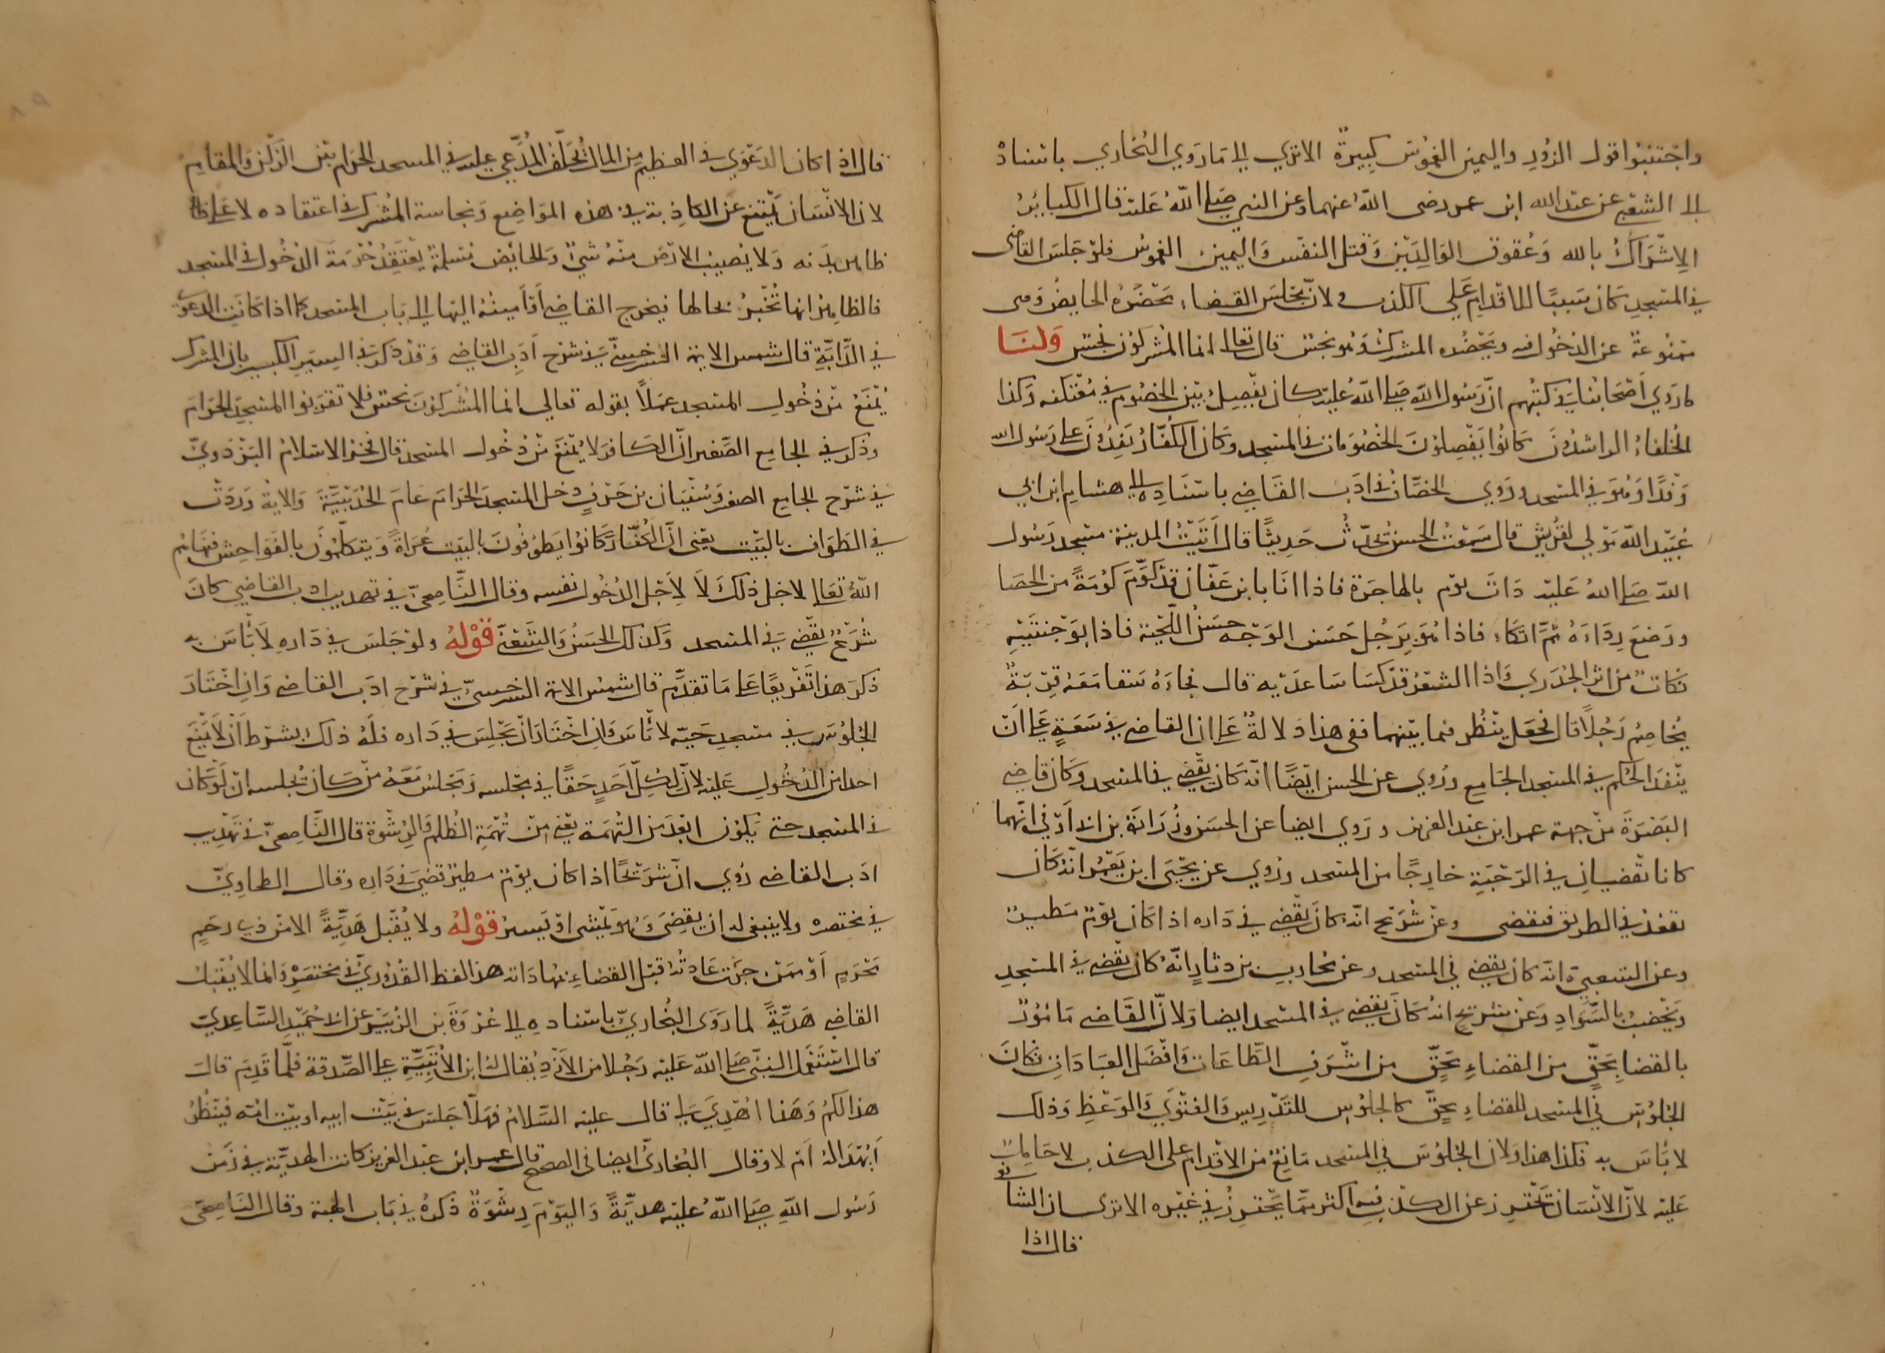 واجتنبوا قول الزور واليمين الغموس كبيرة الا ترى الى ما روى البخاري باسناده
الى الشعبي عن عبد الله ابن عمر رضى الله عنهما عن النبي صلى الله عليه قال الكبائر
الاشراك بالله وعقوق الوالدين وقتل النفس واليمين الغموس فلو جلس القاضى
في المسجد كان سببا للاقدام على الكذب ولان مجلس القضاء تحضره الحايض وهى
ممنوعة عن الدخول فيه ويحضره المشرك وهو نجس قال تعالى انما المشركون نجس ولنا
ما روي اصحابنا في كتبهم ان رسول الله صلى الله عليه كان يفصل بين الخصوم في معتكفه وكذا
الخلفاء الراشدون كانوا يفصلون الخصومات في المسجد وكان الكفار يفدون على رسول الله
وفدا وهو في المسجد وروي الخصاف في ادب القاضي باسناده الى هشام ابن ابي
عبيد الله مولى لقريش قال سمعت الحسن يحدث حديثا قال اتيت المدينة مسجد رسول
الله صلى الله عليه ذات يوم بالهاجرة فاذا انا بابن عفان قد كوم كومة من الحصا
ووضع رداءه ثم اتكاء فاذا هو برجل حسن الوجه حسن اللحية فاذا بوجنتيه
نكات من اثر الجدري واذا الشعر قد كسا ساعديه قال فجاءه سقا معه قربة
يخاصم رجلا قال فجعل ينظر فيما بينهما ففى هذا دلالة على ان القاضي في سعة على ان
ينفذ الحكم في المسجد الجامع وروي عن الحسن ايضا انه كان يقضي في المسجد وكان قاضي
البصرة من جهة عمر ابن عبد العزيز وروي ايضا عن الحسن وزرارة بن ابى اوفى انهما
كانا يقضيان في الرحبة خارجا من المسجد وروي عن يحيى ابن يعمر انه كان
يقعد في الطريق فيقضى وعن شريح انه كان يقضي في داره اذا كان يوم مطير
وعن الشعبي انه كان يقضي في المسجد وعن محارب بن دثار انه كان يقضي في المسجد
ويخضب بالسواد وعن شريح انه كان يقضي في المسجد ايضا ولان القاضي مامور
بالقضا بحق من القضاء بحق من اشرف الطاعات وافضل العبادات فكان
الجلوس في المسجد للقضاء بحق كالجلوس للتدريس والفتوي والوعظ وذلك
لا باس به فكذا هذا ولان الجلوس في المسجد مانع من الاقدام على الكذب لا حامل
عليه لان الانسان يحترز عن الكذب فيه اكثر مما يحترز في غيره الا ترى ان الشافعى
قال اذا
قال اذا كان الدعوي في العظيم من المال يحلف المدعي عليه في المسجد الحرام بين الركن والمقام
لان الانسان يمتنع عن الكاذبة في هذه المواضع ونجاسة المشرك في اعتقاده لا على
ظاهر بدنه ولا يصيب الارض منه شئ والحايض مسلمة يعتقد حرمة الدخول في المسجد
فالظاهر انها تخبر بحالها فيخرج القاضي او امينه اليها الى باب المسجد كما اذا كانت الدعوى
في الدابة قال شمس الايمة السرخسي في شرح ادب القاضي وقد ذكر في السير الكبير بان المشرك
يمنع من دخول المسجد عملا بقوله تعالى انما المشركون نجس فلا تقربوا المسجد الحرام
وذكر في الجامع الصغير ان الكافر لا يمنع من دخول المسجد قال فخر الاسلام البزدوي
في شرح الجامع الصغير وسفيان بن حرب دخل المسجد الحرام عام الحديبية والاية وردت
في الطواف بالبيت يعنى ان الكفار كانوا يطوفون بالبيت عراة ويتكلمون بالفواحش فنهاهم
الله تعالى لاجل ذلك لا لاجل الدخول نفسه وقال الناصحي في تهذيب ادب القاضي كان
شريح يقضي في المسجد وكذلك الحسن والشعبي قوله ولو جلس في داره لا باس به
ذكر هذا تفريعا على ما تقدم قال شمس الايمة السرخسي في شرح ادب القاضي وان اختار
الجلوس في مسجد حيه لا باس وان اختار ان يجلس في داره فله ذلك بشرط ان لا يمنع
احدا من الدخول عليه لان لكل احد حقا في مجلسه ويجلس معه من كان يجلسه ان لو كان
في المسجد حتى يكون ابعد من التهمة يعنى من تهمة الظلم والرشوة قال الناصحي في تهذيب
ادب القاضي روي ان شريحا اذا كان يوم مطير قضى في داره وقال الطحاوي
في مختصره ولا ينبغى له ان يقضى وهو يمشى او يسير قوله ولا يقبل هدية الا من ذي رحم
محرم او ممن جرت عادته قبل القضاء بمهاداته هذا لفظ القدوري في مختصره وانما لا يقبل
القاضي هدية لما روى البخاري باسناده الى عروة بن الزبير عن ابى حميد الساعدي
قال استعمل النبي صلى الله عليه رجلا من الازد يقال له ابن الاتبية على الصدقة فلما قدم قال
هذا لكم وهذا اهدي لي قال عليه السلام فهلا جلس في بيت ابيه او بيت امه فينظر
ايهدا له ام لا وقال البخاري ايضا في الصحيح قال عمر ابن عبد العزيز كانت الهدية في زمن
رسول الله صلى الله عليه هدية واليوم رشوة ذكره في باب الهبة وقال الناصحي